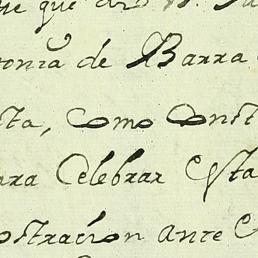 que
tonia de Barra
ta, como Const
ara Celebrar esta
ostracion ante